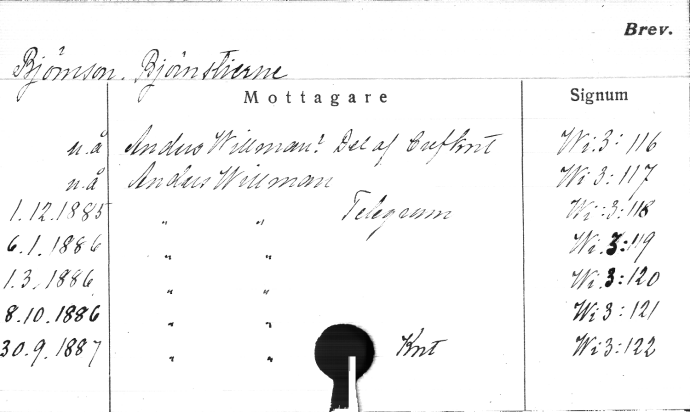 Brev.
Björnson. Björnstierne
Mottagare Signum
u.å Anders Willman? Del af brefkort Wi.3: 116
u.å Anders Willman Wi 3: 117
1.12.1885 " " Telegram Wi:3:118
6.1.1886 " " Wi.3:119
1.3.1886 " " Wi.3:120
8.10.1886 " " Wi 3:121
30.9.1887 " " Kort Wi3:122